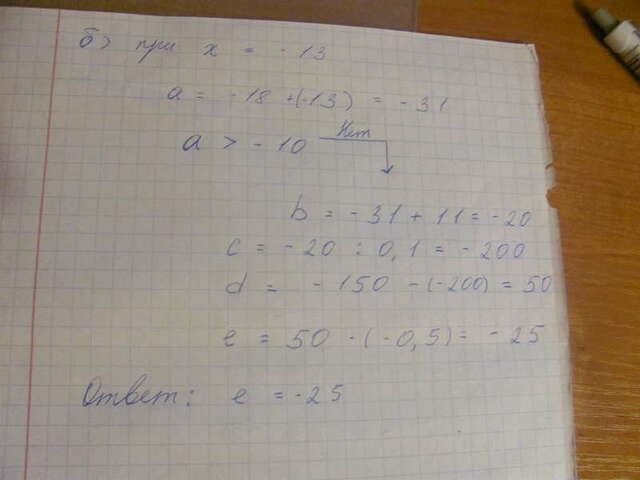 б) при x = -13
a = -18 + (-13) = -31
a > -10 Нет
b = -31 + 11 = -20
c = -20 : 0,1 = -200
d = -150 - (-200) = 50
e = 50 · (-0,5) = -25
Ответ: e = -25